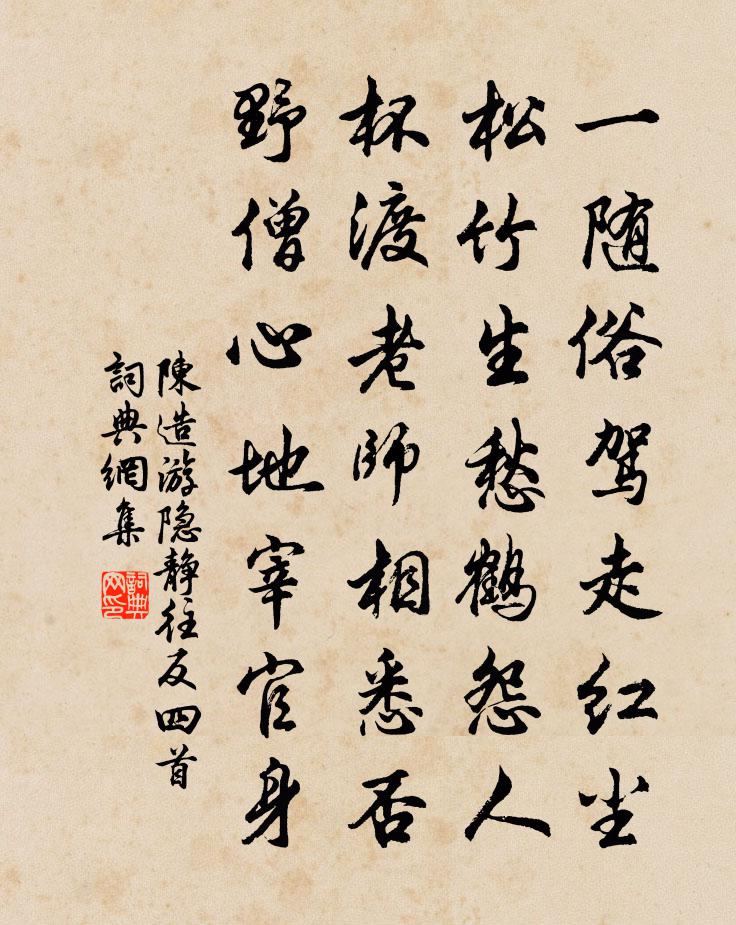 一随俗驾走红尘
松竹生愁鹤怨人
杯渡老师相悉否
野僧心地宰官身
陳造游隐静往反四首
詞典網集
詞典网印